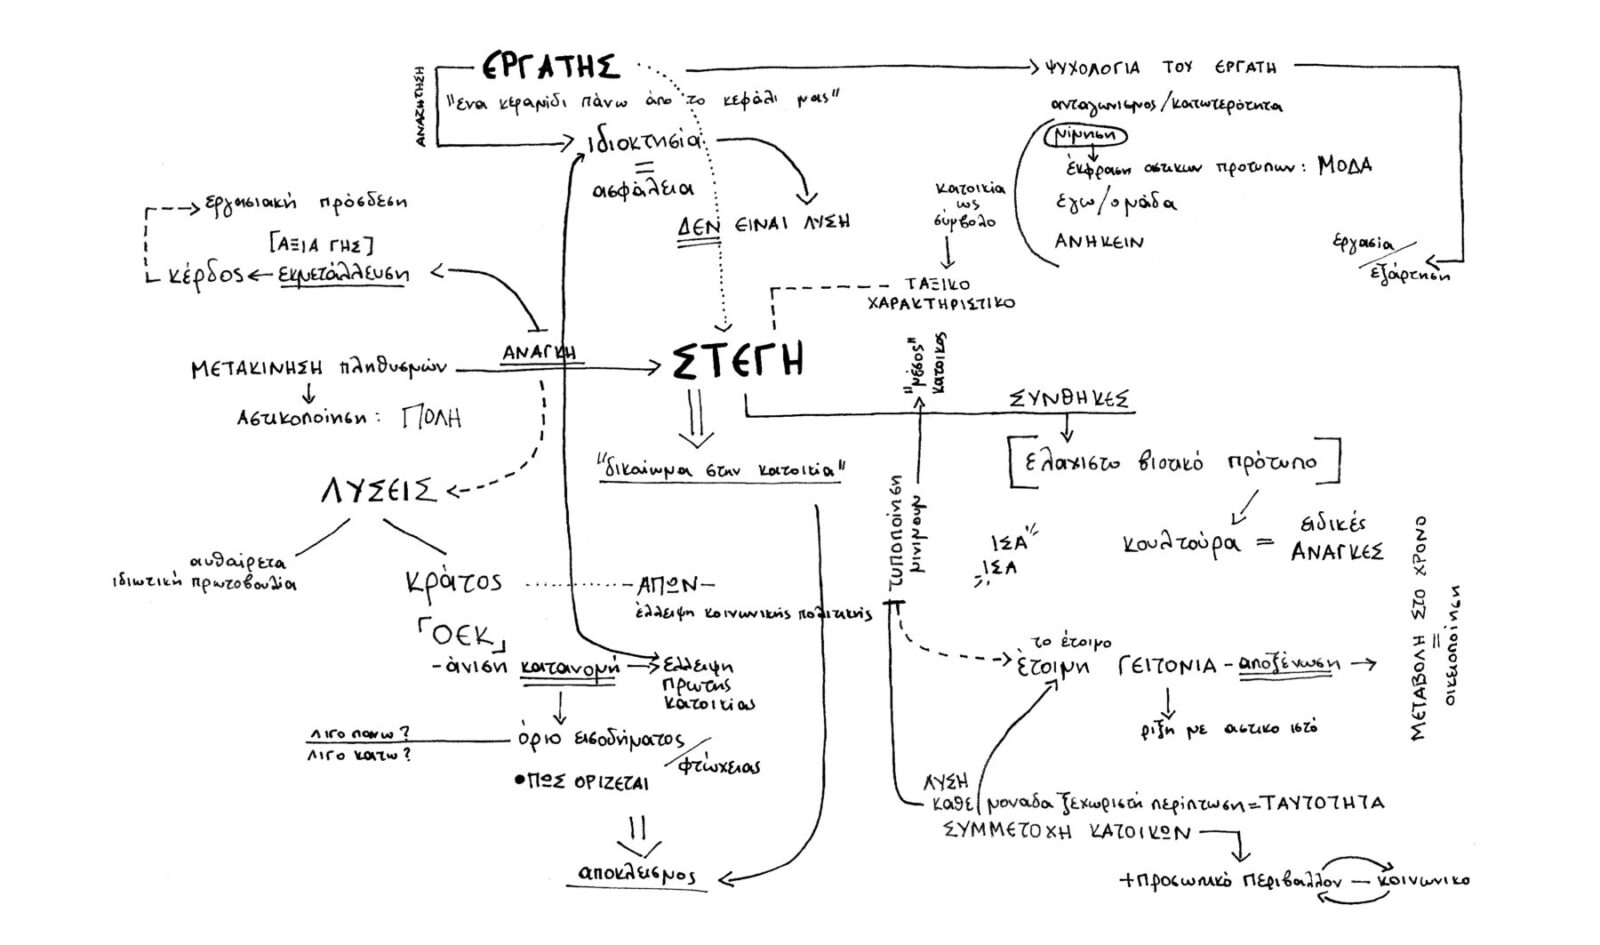 ΕΡΓΑΤΗΣ
ΑΝΑΖΗΤΗΣΗ
"ενα κεραμίδι πάνω από το κεφάλι μας"
ιδιοκτησία
=
ασφάλεια
ΔΕΝ ΕΙΝΑΙ ΛΥΣΗ
ΨΥΧΟΛΟΓΙΑ ΤΟΥ ΕΡΓΑΤΗ
ανταγωνισμος/κατωτερότητα
μίμηση
έκφραση αστικων προτυπων: ΜΟΔΑ
εγω/ομάδα
ΑΝΗΚΕΙΝ
κατοικία
ως
σύμβολο
ΤΑΞΙΚΟ
ΧΑΡΑΚΤΗΡΙΣΤΙΚΟ
εργασία/
εξάρτηση
εργασιακή πρόσδεση
[ΑΞΙΑ ΓΗΣ]
κέρδος
εκμετάλλευση
ΜΕΤΑΚΙΝΗΣΗ πληθυσμών
ΑΝΑΓΚΗ
ΣΤΕΓΗ
Αστικοποίηση: ΠΟΛΗ
"μέσος"
κάτοικος
ΣΥΝΘΗΚΕΣ
[ελαχιστο βιοτικό πρότυπο]
κουλτούρα = ειδικές
ΑΝΑΓΚΕΣ
"δικαίωμα στην κατοικία"
ΛΥΣΕΙΣ
αυθαίρετα
ιδιωτική πρωτοβουλία
κράτος
-ΑΠΩΝ-
έλλειψη κοινωνικής πολιτικής
「ΟΕΚ」
-άνιση κατανομή
έλλειψη
πρωτης
κατοικίας
όριο εισοδήματος/
φτώχειας
ΛΙΓΟ ΠΑΝΩ?
ΛΙΓΟ ΚΑΤΩ?
•ΠΩΣ ΟΡΙΖΕΤΑΙ
αποκλεισμος
τυποποίηση
μινιμουμ
ΙΣΑ
ΙΣΑ
το έτοιμο
έτοιμη ΓΕΙΤΟΝΙΑ - αποξένωση
ρίξη με αστικο ιστό
ΜΕΤΑΒΟΛΗ ΣΤΟ ΧΡΟΝΟ
=
οικειοποίηση
ΛΥΣΗ
καθε μοναδα ξεχωριστή περίπτωση=ΤΑΥΤΟΤΗΤΑ
ΣΥΜΜΕΤΟΧΗ ΚΑΤΟΙΚΩΝ
+προσωπικό περιβαλλον — κοινωνικο